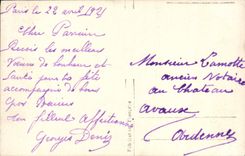 Paris le 22 avril 1921
Cher Parrain
Reçois les meilleurs
Vœux de bonheur et
Santé pour ta fête
accompagné de bons
Gros Baisers
ton filleul Affectionné
Georges Denis
Monsieur Lamotte
ancien Notaire
au Château
Ardennes